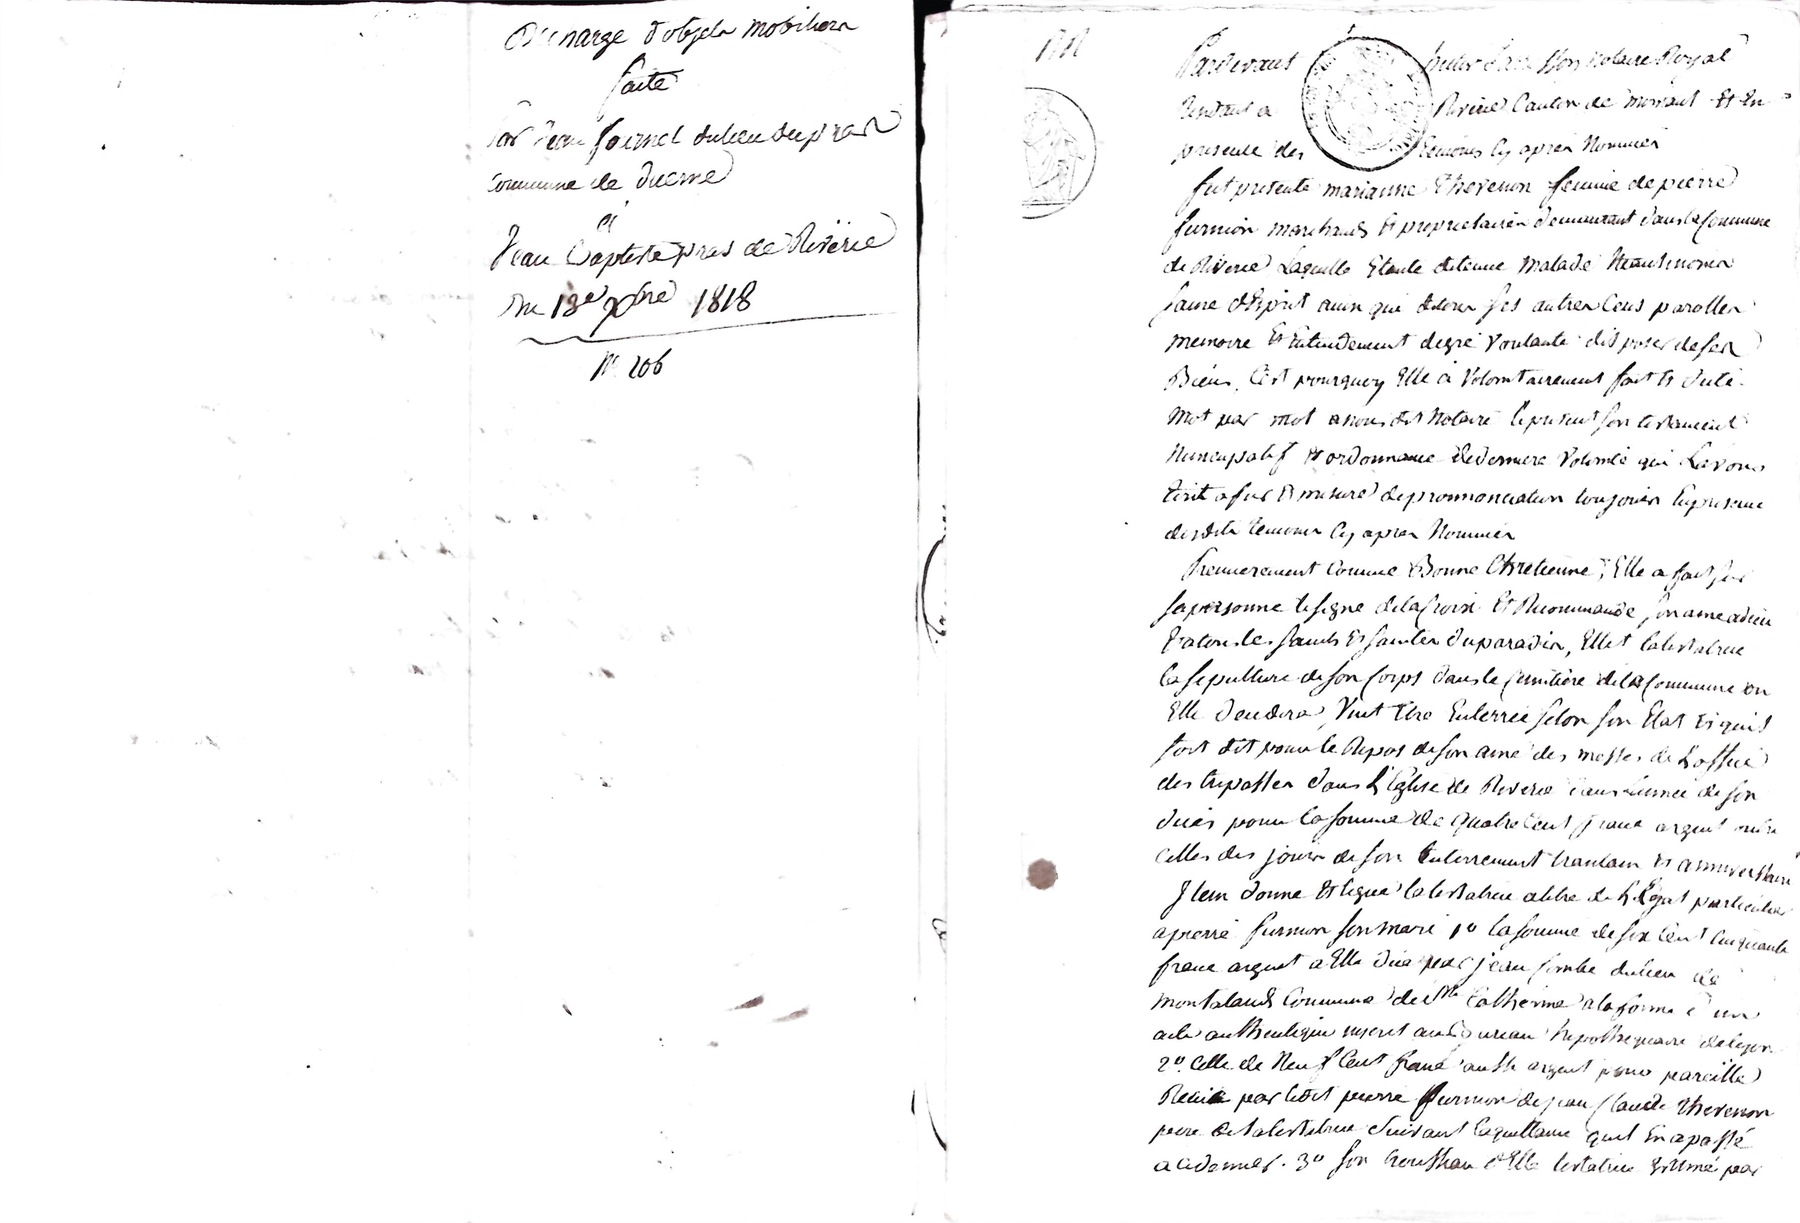 Décharge d'objets mobiliers
faite
par Jean fournel du lieu du
commune de duerne
à
Jean Baptiste pras de Riverie
Du 13e xbre 1818
N. 206
Pardevant notaire Royal
Resident a Riverie Canton de mornant Et En
presence des temoins Cy apres Nommés
fut presente marianne thevenon femme de pierre
furnion marchands Et proprietaires demeurant dans la Commune
de Riverie Laquelle Etante detenue Malade Neanmoins
saine d'Esprit ainsi que de tous ses autres Cens parolles
memoire Et Entendement de gré voulante disposer de ses
Biens, C'est pourquoy Elle a volontairement fait Et dicté
Mot par mot a nous dit Notaire le present son testament
Nuncupatif Et ordonnance de derniere volonté que L'avons
Ecrit a fur Et mesure de pronnonciation toujours En presence
desdits temoins Cy apres Nommés
Premierement comme Bonne Chretienne, Elle a fait sur
sa personne le signe de la Croix Et Recommandé son ame a dieu
Et a tous les saints Et saintes du paradis, Ellit la testatrice
la sepulture de son Corps dans le Cimitière de la Commune ou
Elle decedera, Veut Etre Enterrée selon son Etat Et qu'il
soit dit pour le Repos de son ame des messes de L'office
des trepassés dans L'Eglise de Riverie dans L'année de son
deces pour la somme de quatre Cent franc argent outre
celles des jours de son Enterrement trantain Et anniversaire
Item donne Et legue la testatrice a titre de Légat particulier
a pierre furnion son mari 1º la somme de six Cent Cinquante
franc argent a Elle due par jean Combe du lieu de
montaland Commune de Ste Catherine a la forme d'un
acte authentique inscrit au Bureau hipothequaire de lyon
2º Celle de Neuf Cent franc aussi argent pour pareille
Recüe par ledit pierre furnion de jean Claude thevenon
pere de la testatrice suivant la quittance qu'il En a passé
3º son trousseau d'Elle testatrice Estimé par